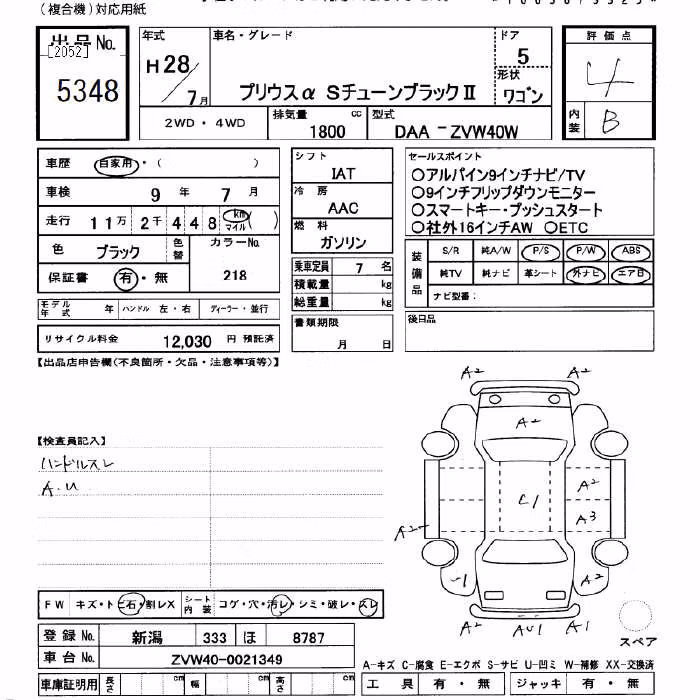 (複合機)対応用紙
出品No.
[2052]
5348
年式
H28/7月
車名・グレード
プリウスα SチューンブラックⅡ
ドア
5
形状
ワゴン
評価点
4
内装
B
2WD・4WD
排気量
1800 cc
型式
DAA-ZVW40W
車歴
自家用・( )
車検
9年 7月
走行
11万2千448 km マイル ( )
色
ブラック
色替
カラーNo.
218
保証書
有・無
モデル年式 年
ハンドル 左・右
ディーラー・並行
リサイクル料金 12,030 円 預託済
シフト
IAT
冷房
AAC
燃料
ガソリン
乗車定員 7 名
積載量 kg
総重量 kg
書類期限
月 日
セールスポイント
○アルパイン9インチナビ/TV
○9インチフリップダウンモニター
○スマートキー・プッシュスタート
○社外16インチAW ○ETC
装備品
S/R 純A/W P/S P/W ABS
純TV 純ナビ 革シート 外ナビ エアB
ナビ型番:
後日品
【出品店申告欄(不良箇所・欠品・注意事項等)】
【検査員記入】
ハンドルスレ
A.U
A2 A2
A2
A2
C1
A3
A2
A2
A2 AU1 A1
スペア
FW キズ・トビ石・割レX
シート内装 コゲ・穴・汚レ・シミ・破レ・スレ
登録No. 新潟 333 ほ 8787
車台No. ZVW40-0021349
車庫証明用 長さ cm 幅 cm 高さ cm
A-キズ C-腐食 E-エクボ S-サビ U-凹ミ W-補修 XX-交換済
工具 有・無 ジャッキ 有・無